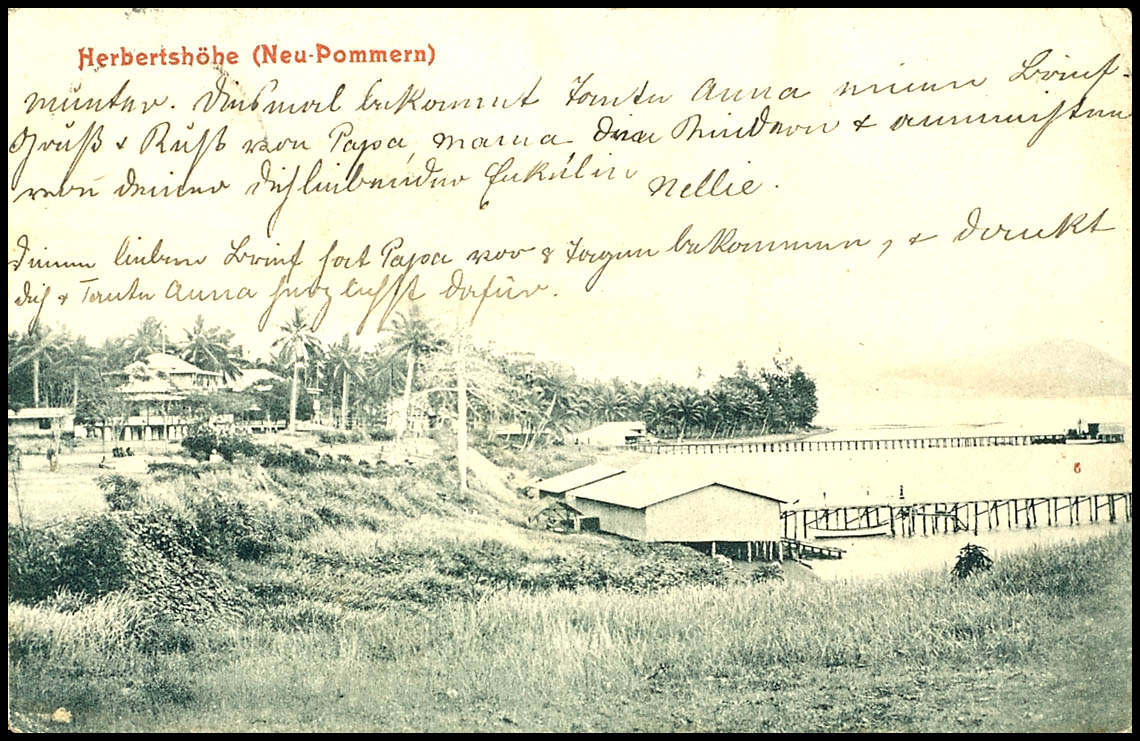 Herbertshöhe (Neu-Pommern)
munter. Diesmal bekommt Tante Anna einen Brief.
Gruß & Kuß von Papa, Mama den Kindern & am meisten
von deiner dich liebenden Enkelin Nellie.
Deinen lieben Brief hat Papa vor 8 Tagen bekommen, & dankt
dich & Tante Anna herzlichst dafür.